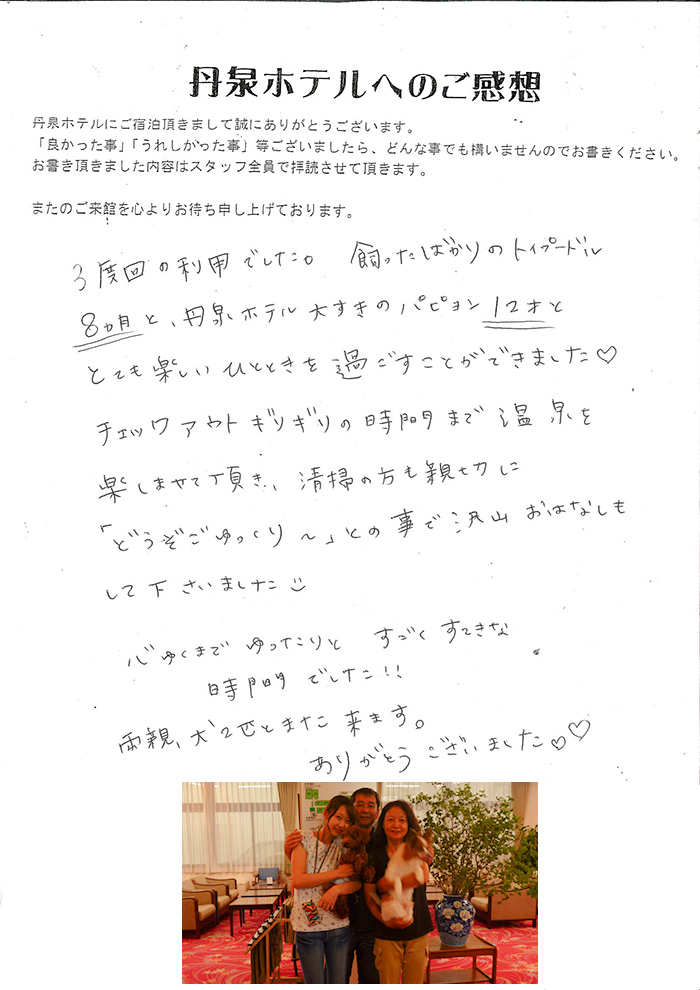 丹泉ホテルへのご感想
丹泉ホテルにご宿泊頂きまして誠にありがとうございます。
「良かった事」「うれしかった事」等ございましたら、どんな事でも構いませんのでお書きください。
お書き頂きました内容はスタッフ全員で拝読させて頂きます。
またのご来館を心よりお待ち申し上げております。
3度回の利用でした。 飼ったばかりのトイプードル
8ヵ月と、丹泉ホテル大すきのパピヨン12才と
とても楽しいひとときを過ごすことができました♡
チェックアウトギリギリの時間まで温泉を
楽しませて頂き、清掃の方も親切に
「どうぞごゆっくり〜」との事で沢山おはなしも
して下さいました
心ゆくまでゆったりと すごくすてきな
時間でした!!
両親、犬2匹とまた来ます。
ありがとうございました♡♡